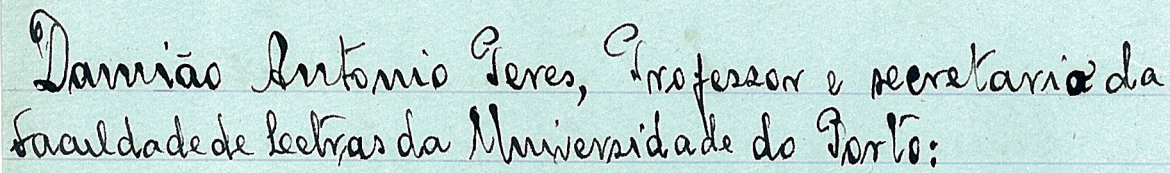 Damião Antonio Peres, Professor e secretario da
Faculdade de Letras da Universidade do Porto: